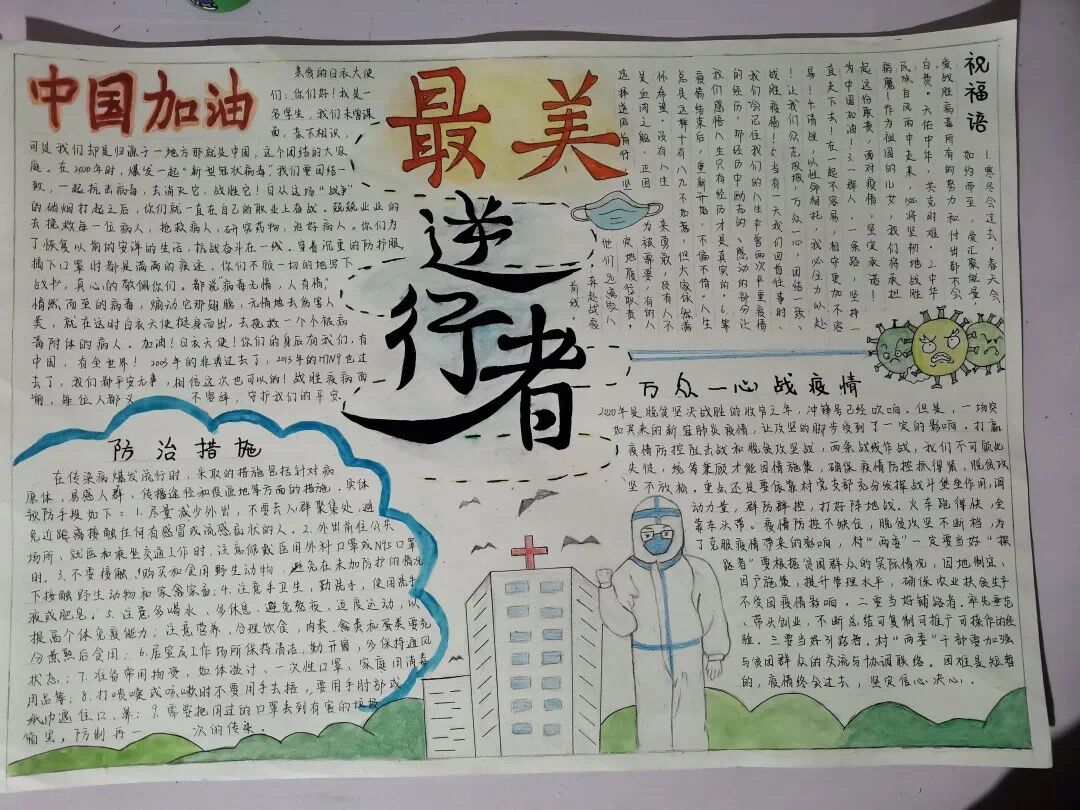 中国加油
亲爱的白衣天使
们：你们好！我是一
名学生，我们未曾谋
面，素不相识，
可是我们却是归源于一地方那就是中国，这个团结的大家
庭。在2020年时，爆发一起“新型冠状病毒”我们要团结一
致，一起抗击病毒，去消灭它，战胜它！自从这场“战争”
的硝烟打起之后，你们就一直在自己的职业上奋战。兢兢业业的
去挽救每一位病人，抢救病人，研究药物，进好病人。你们为
了恢复以前的安详的生活，抗战奋斗在一线。穿着沉重的防护服，
摘下口罩时都是满满的痕迹。你们不顾一切的地写下
战书，真心的敬佩你们，都说病毒无情，人有情。
悄然而至的病毒，煽动它那翅膀，无情地去伤害人
类，就在这时白衣天使挺身而出，去挽救一个个被病
毒附体的病人。加油！白衣天使！你们的身后有我们，有
中国，有全世界！2003年的非典过去了，2013年的H7N9也过
去了，我们都平安无事，相信这次也可以的！战胜疫病面
前，每位人都义 不容辞，守护我们的平安。
最美
逆
行
者
祝福语
1.寒冬会过去，春天会
如约而至，爱汇聚能量，
爱战胜病毒所有的努力和付出都不会
白费。天佑中华，共克时难。2.中华
民族自风雨中走来，心将坚初地战胜
病魔！作为祖国的儿女，我们将承担
起这份职责，面对疫情，坚定承诺！
为中国加油！3.一群人，一条路，坚持一
直走下去！在一起不容易，相守更加不容
易！4.请缨，以性命相托，我必全力以赴
！让我们众志成城，万众一心，团结一致，
战胜疫情！5.当有一天我们回首往事时，
我们会记住我们的人生中曾面次严重疫情
的经历，那经历中励志的、感动的部分让
我们感悟人生只有经历才是真实的。6.等
疫情结束后，重新开始，不偏不倚。人生
总是这样十有八九不如意，但大家依然满
怀希望，没有人生来勇敢，没有人不
是血肉之躯，正因为被需要，有的人
选择逆风前行，坚定地履行职责，
他们远离家人
，奔赴战疫
前线
万众一心战疫情
2020年是脱贫坚决战胜的收官之年，冲锋号已经吹响。但是，一场突
如其来的新冠肺炎疫情，让攻坚的脚步受到了一定的影响。打赢
疫情防控阻击战和脱贫攻坚战，两条战线作战，我们不可顾此
失彼，统筹兼顾才能因情施策，确保疫情防控抓得紧，脱贫攻
坚不放松。重点还是要依靠村党支部充分发挥战斗堡垒作用，调
动力量，群防群控，打好阵地战。火车跑得快，全
靠车头带。疫情防控不缺位，脱贫攻坚不断档，为
了克服疫情带来的影响，村“两委”一定要当好“探
路者”要根据贫困群众的实际情况，因地制宜、
因户施策，提升管理水平，确保农业扶贫生产
不受因疫情影响。二要当好铺路者。率先垂范
、带头创业，不断总结可复制可推广可操作的经
验。三要当好引路者，村“两委”干部要加强
与贫困群众的交流与协调联络。困难是短暂
的，疫情终会过去，坚定信心决心。
防治措施
在传染病爆发流行时，采取的措施包括针对病
原体、易感人群、传播途径和役源地等方面的措施，实体
预防手段如下：1.尽量减少外出，不要去人群聚集处，避
免近距离接触任何有感冒或流感症状的人。2.外出前往公共
场所、就医和乘坐交通工作时，注意佩戴医用外科口罩或N95口罩
时。3.不要接触、购买和食用野生动物，避免在未加防护的情况
下接触野生动物和家禽家畜；4.注意手卫生，勤洗手，使用洗手
液或肥皂。5.注意多喝水、多休息，避免熬夜、适度运动，以
提高个体免疫能力；注意营养、合理饮食，肉类、禽类和蛋类要充
分煮熟后食用；6.居室及工作场所保持清洁，勤开展，多保持通风
状态；7.准备常用物资，如体温计、一次性口罩、家庭用消毒
用品等；8.打喷嚏或咳嗽时不要用手去捂，要用手肘部或
纸巾遮住口、鼻；9.需要把用过的口罩丢到有害的垃圾
箱里，防制再一 次的传染。